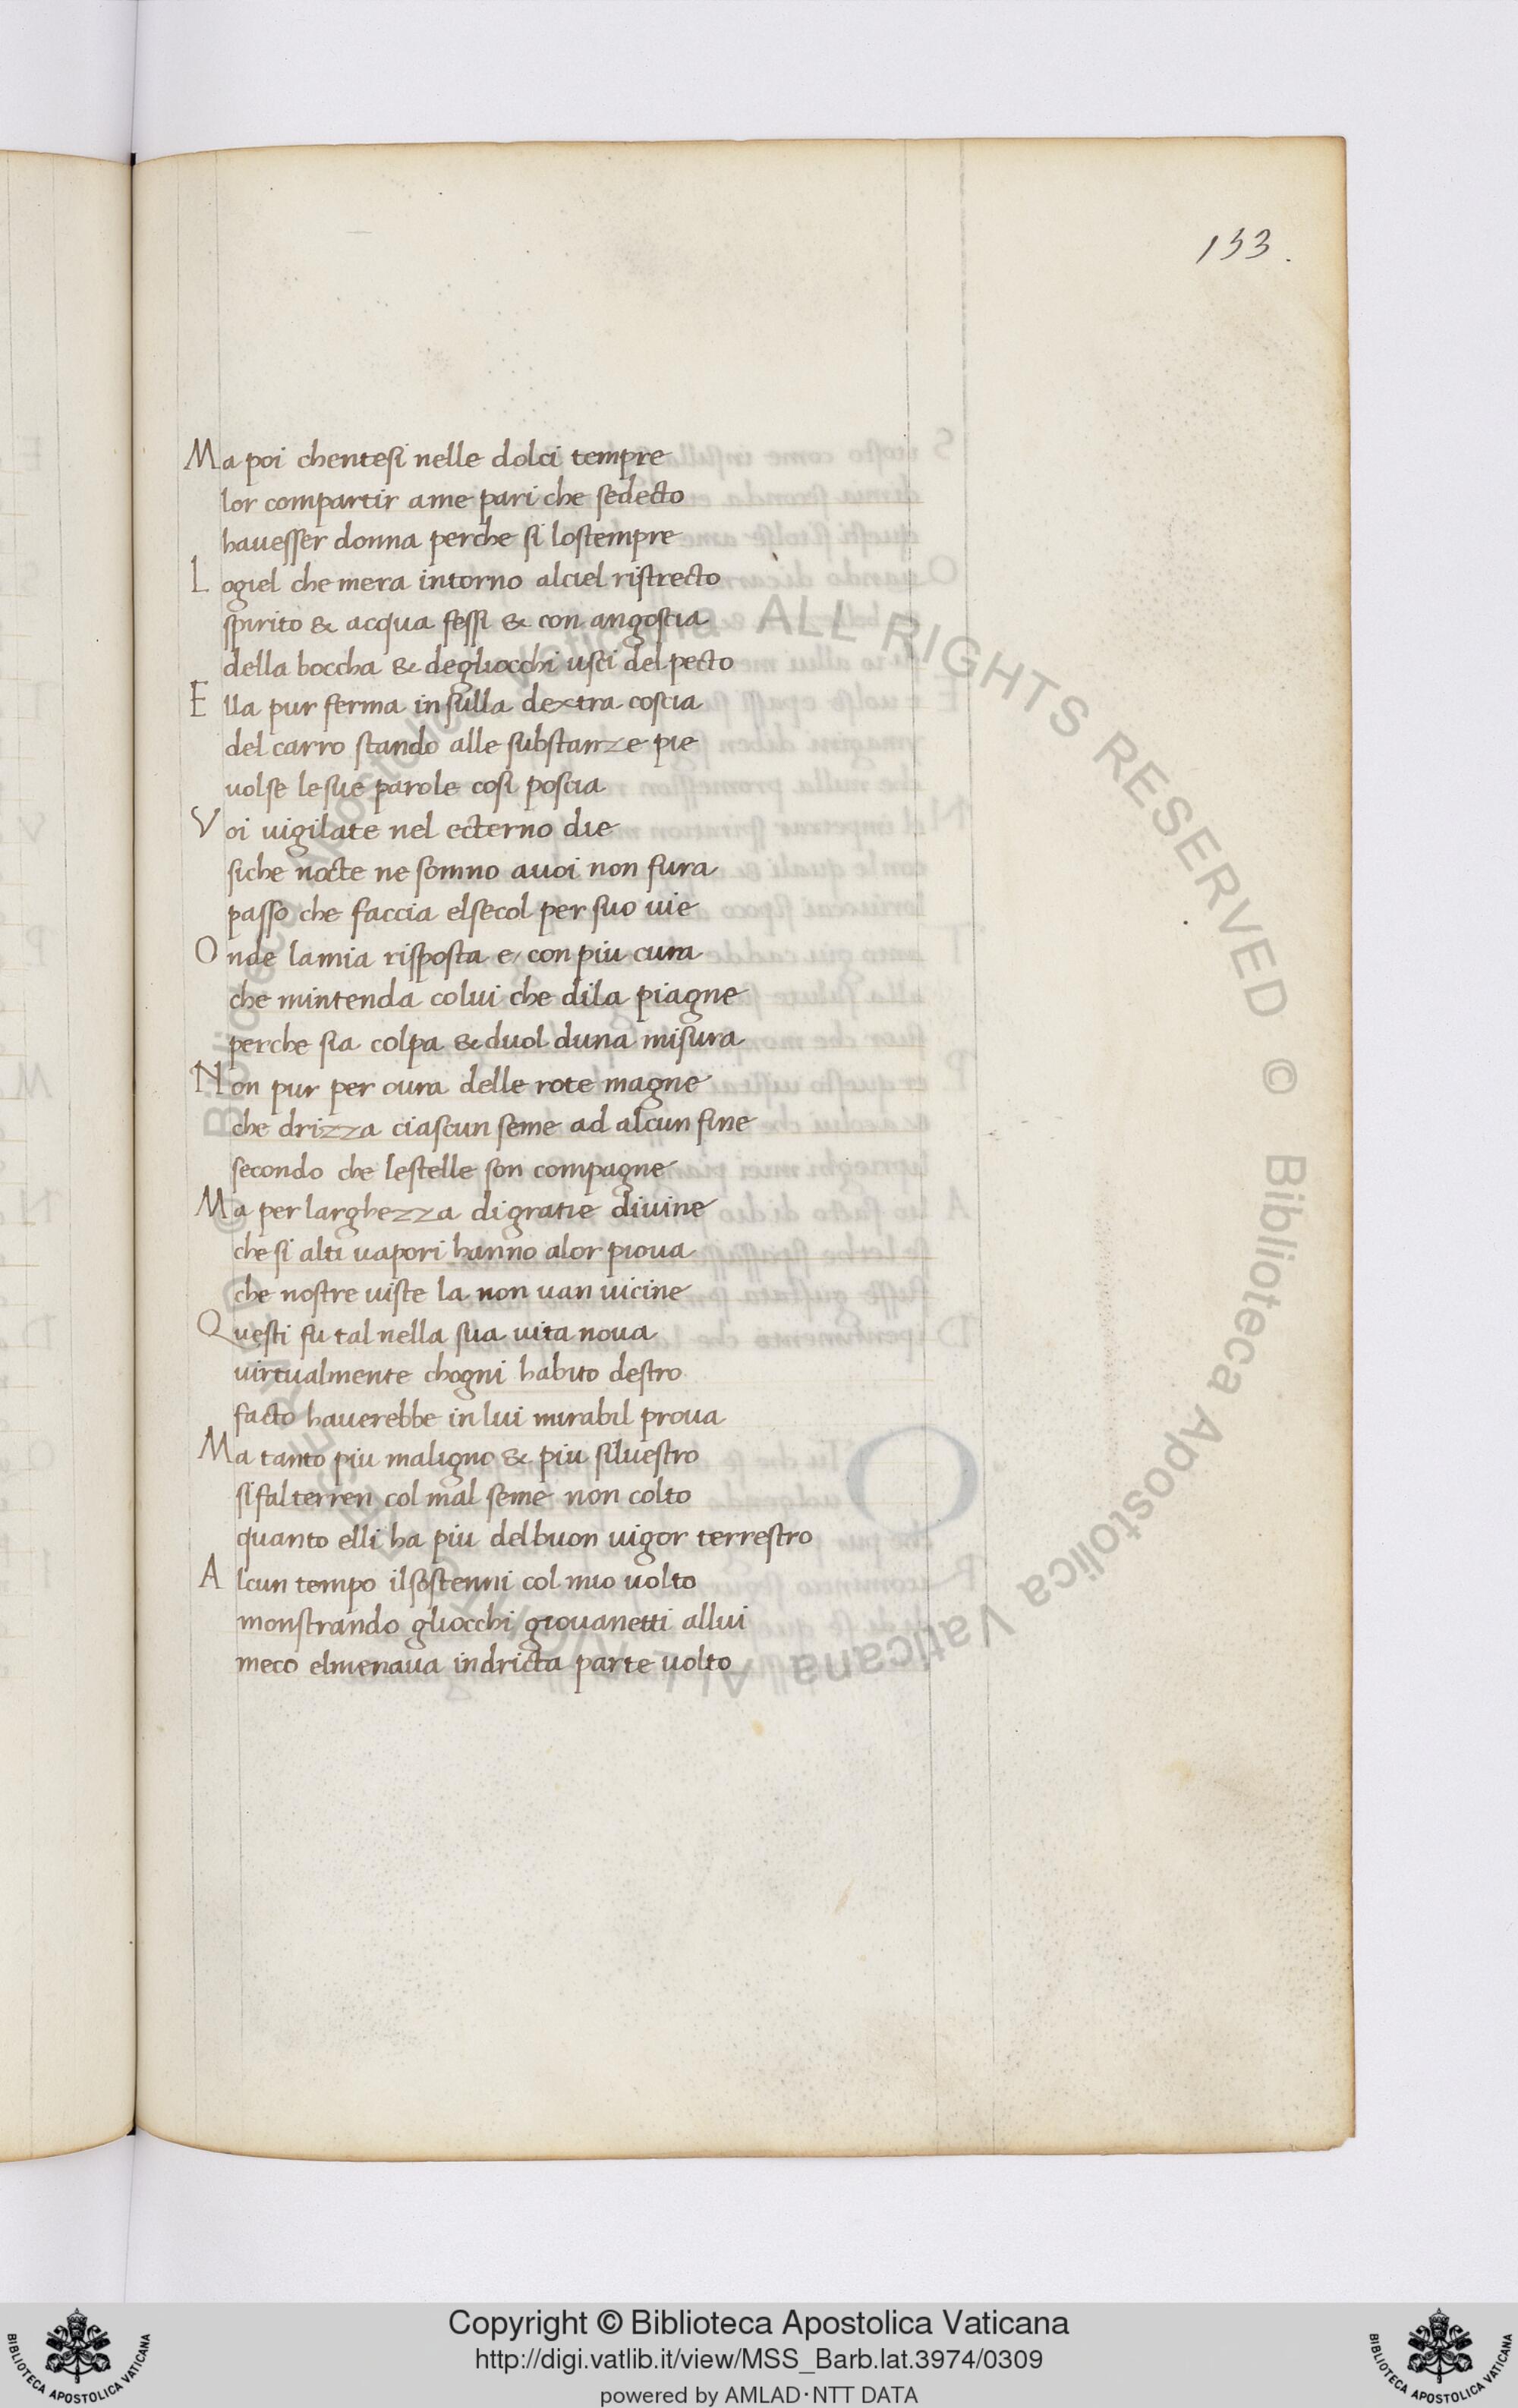 133.
Ma poi chentesi nelle dolci tempre
lor compartir ame pari che sedecto
havesser donna perche si lostempre
Logiel che mera intorno alciel ristrecto
spirito & acqua fessi & con angoscia
della boccha & degliocchi usci del pecto
Ella pur ferma in sulla dextra coscia
del carro stando alle substanze pie
volse le sue parole cosi poscia
Voi vigilate nel ecterno die
siche nocte ne somno avoi non fura
passo che faccia elsecol per suo vie
Onde lamia risposta e, con piu cura
che mintenda colui che dila piagne
perche sia colpa & duol duna misura
Non pur per cura delle rote magne
che drizza ciascun seme ad alcun fine
secondo che lestelle son compagne
Ma per larghezza digratie divine
che si alti vapori hanno alor piova
che nostre viste la non van vicine
Questi fu tal nella sua vita nova
virtualmente chogni habito destro
facto haverebbe in lui mirabil prova
Ma tanto piu maligno & piu silvestro
sifalterren col mal seme non colto
quanto elli ha piu delbuon vigor terrestro
Alcun tempo ilsostenni col mio volto
monstrando gliocchi giovanetti allui
meco elmenava indricta parte volto
© Biblioteca Apostolica Vaticana ALL RIGHTS RESERVED © Biblioteca Apostolica Vaticana ALL RIGHTS RESERVED
BIBLIOTECA APOSTOLICA VATICANA
Copyright © Biblioteca Apostolica Vaticana
http://digi.vatlib.it/view/MSS_Barb.lat.3974/0309
powered by AMLAD·NTT DATA
BIBLIOTECA APOSTOLICA VATICANA